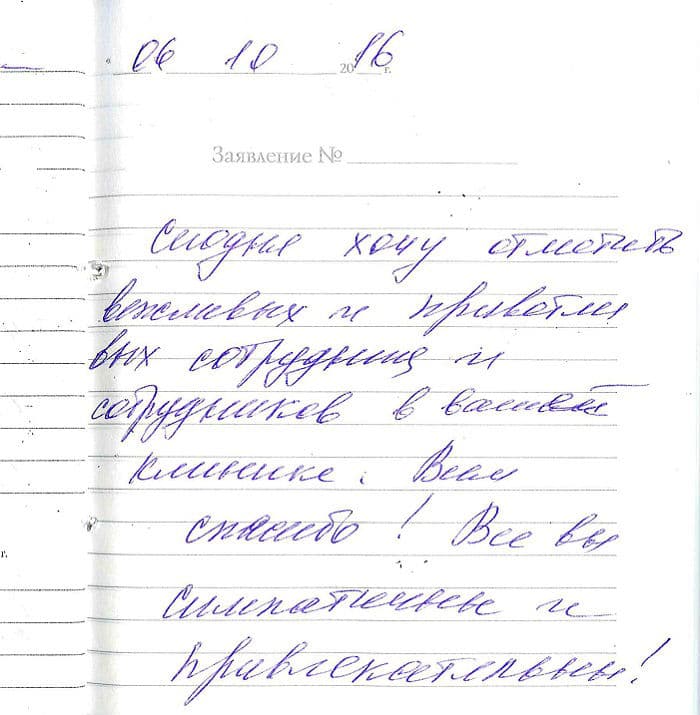 « 06 10 2016 г.
Заявление №
Сегодня хочу отметить
вежливых и приветли
вых сотрудниц и
сотрудников в вашей
клинике. Всем
спасибо! Все вы
симпатичные и
привлекательны!
г.